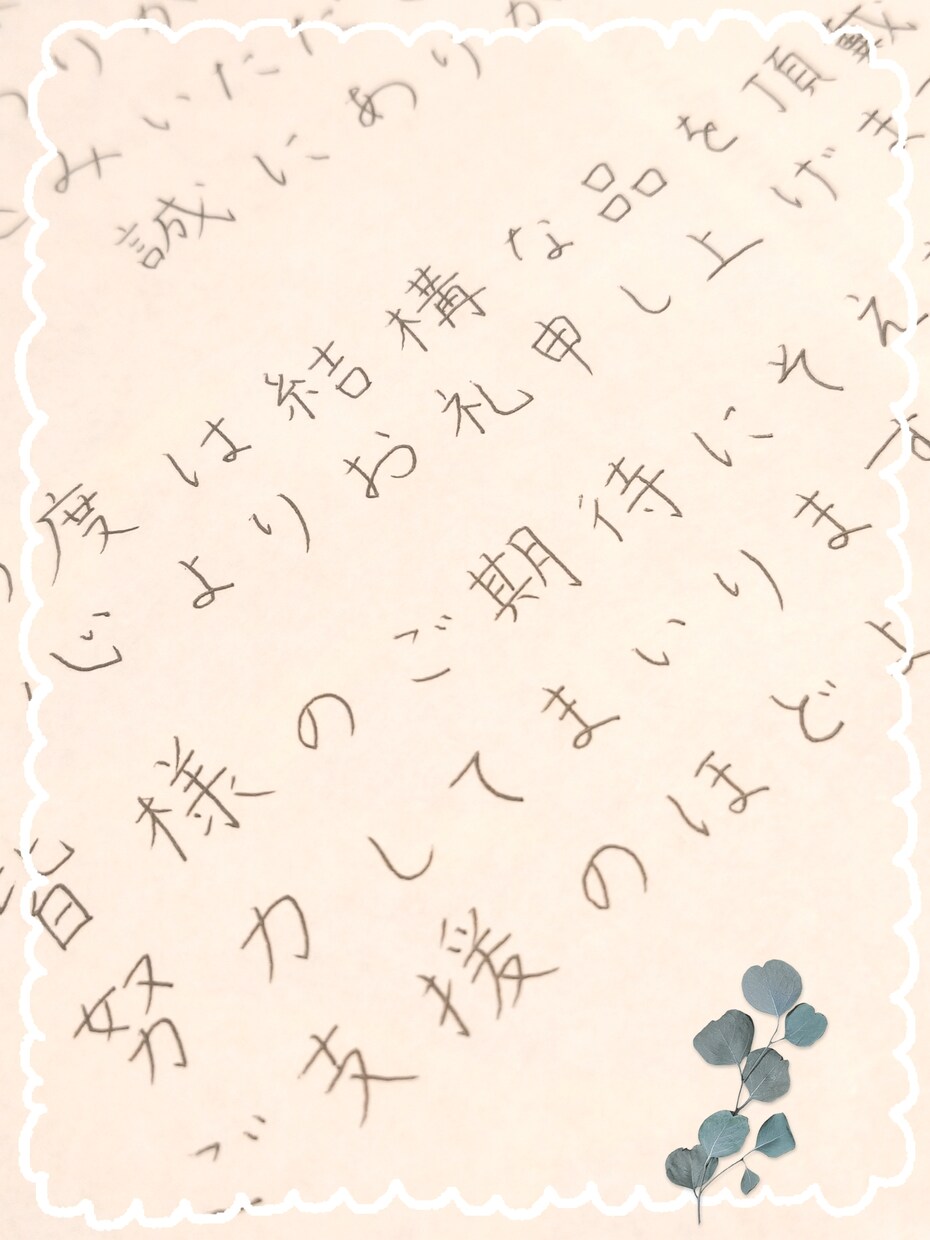 みいただ
誠にあり
度は結構な品を頂戴
心よりお礼申し上げま
皆様のご期待にそえ
努力してまいります
ご支援のほど